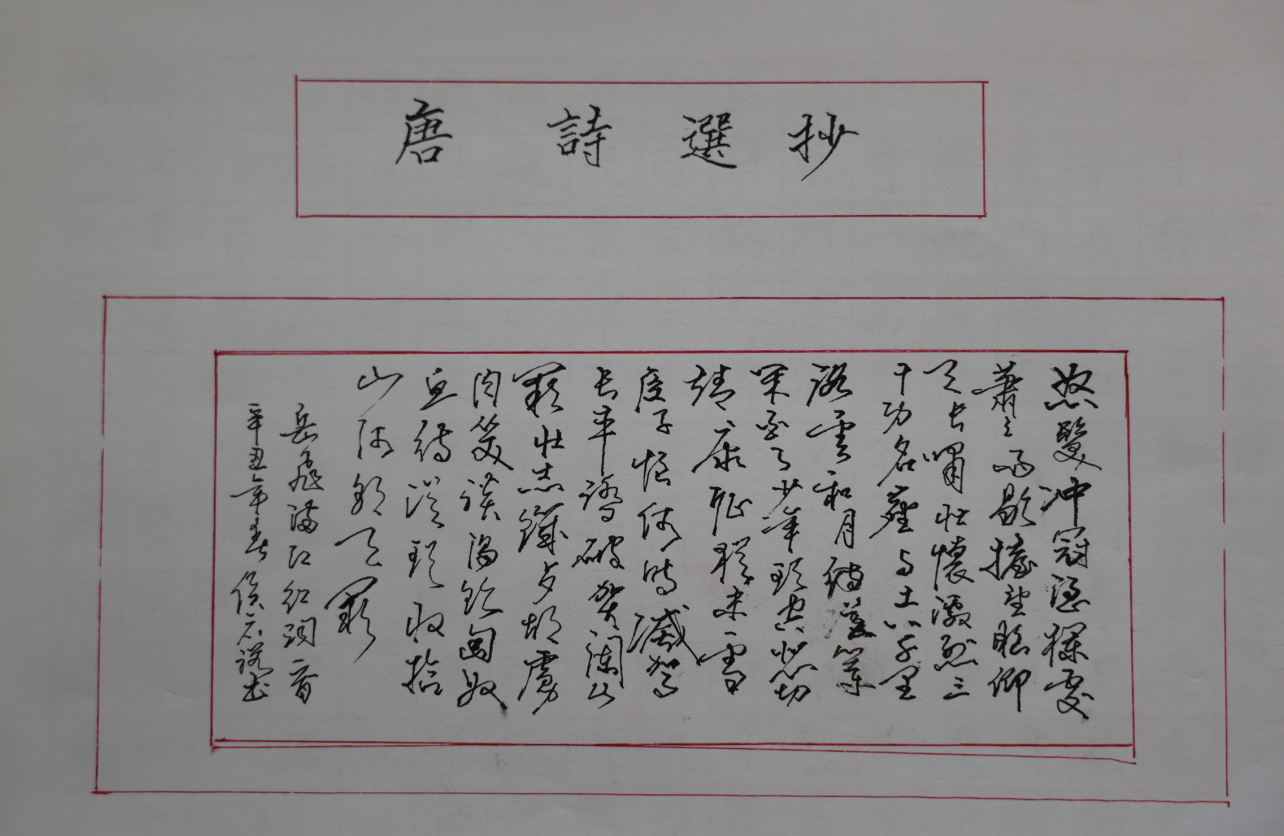 唐詩選抄
怒髮冲冠憑欄處
蕭々雨歇擡望眼仰
天長嘯壯懷激烈三
十功名塵与土八千里
路雲和月等
閑白了少年頭空悲切
靖康耻猶未雪
臣子恨何時滅駕
長車踏破賀蘭山
缺壯志胡虜
肉笑談渴飲匈奴
血待從頭收拾
山河朝天闕
岳飛滿江紅詞一首
辛丑年春書